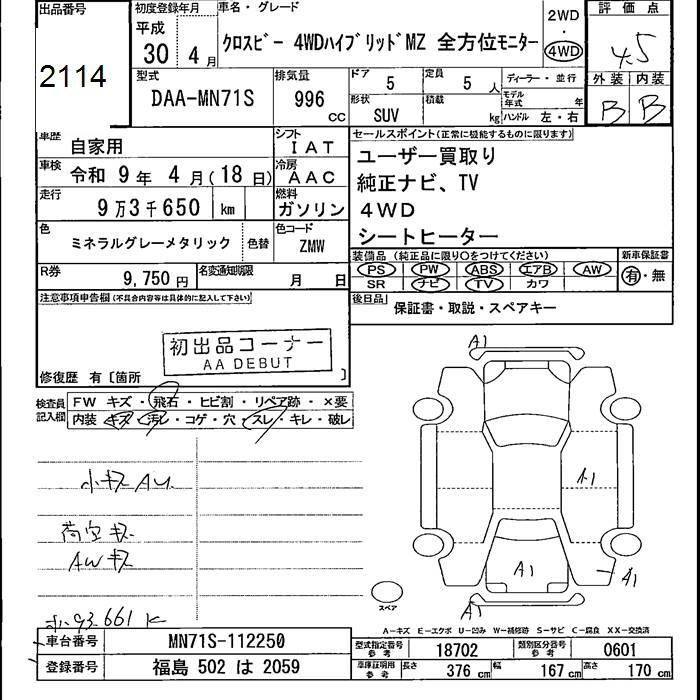 出品番号
2114
初度登録年月
平成
30 4 月
車名・グレード
クロスビー 4WDハイブリッドMZ 全方位モニター
2WD
・
4WD
評価点
4.5
外装 内装
B B
型式
DAA-MN71S
排気量
996
CC
ドア
5
定員
5 人
形状
SUV
積載
kg
ディーラー・並行
モデル年式 年
ハンドル 左・右
車歴
自家用
シフト
IAT
車検
令和 9 年 4 月(18 日)
冷房
AAC
走行
9万3千650 km
燃料
ガソリン
色
ミネラルグレーメタリック
色替
色コード
ZMW
R券
9,750 円
名変通知期限
月 日
セールスポイント(正常に機能するものに限ります)
ユーザー買取り
純正ナビ、TV
4WD
シートヒーター
装備品 (純正品に限り○をつけてください)
PS PW ABS エアB AW
SR ナビ TV カワ
新車保証書
有・無
後日品
保証書・取説・スペアキー
注意事項申告欄(不具合内容等は具体的に記入して下さい)
初出品コーナー
AA DEBUT
修復歴 有〔箇所 〕
検査員
記入欄
FW キズ・飛石・ヒビ割・リペア跡・×要
内装 キズ・汚レ・コゲ・穴・スレ・キレ・破レ
小キズ AU
荷室 キズ
AW キズ
93,661 K
A1
A1
A1
A1
A1
スペア
A-キズ E-エクボ U-凹み W-補修跡 S-サビ C-腐食 XX-交換済
車台番号
MN71S-112250
登録番号
福島 502 は 2059
型式指定番号
参考
18702
類別区分番号
参考
0601
車庫証明用
参考
長さ 376 cm
幅 167 cm
高さ 170 cm